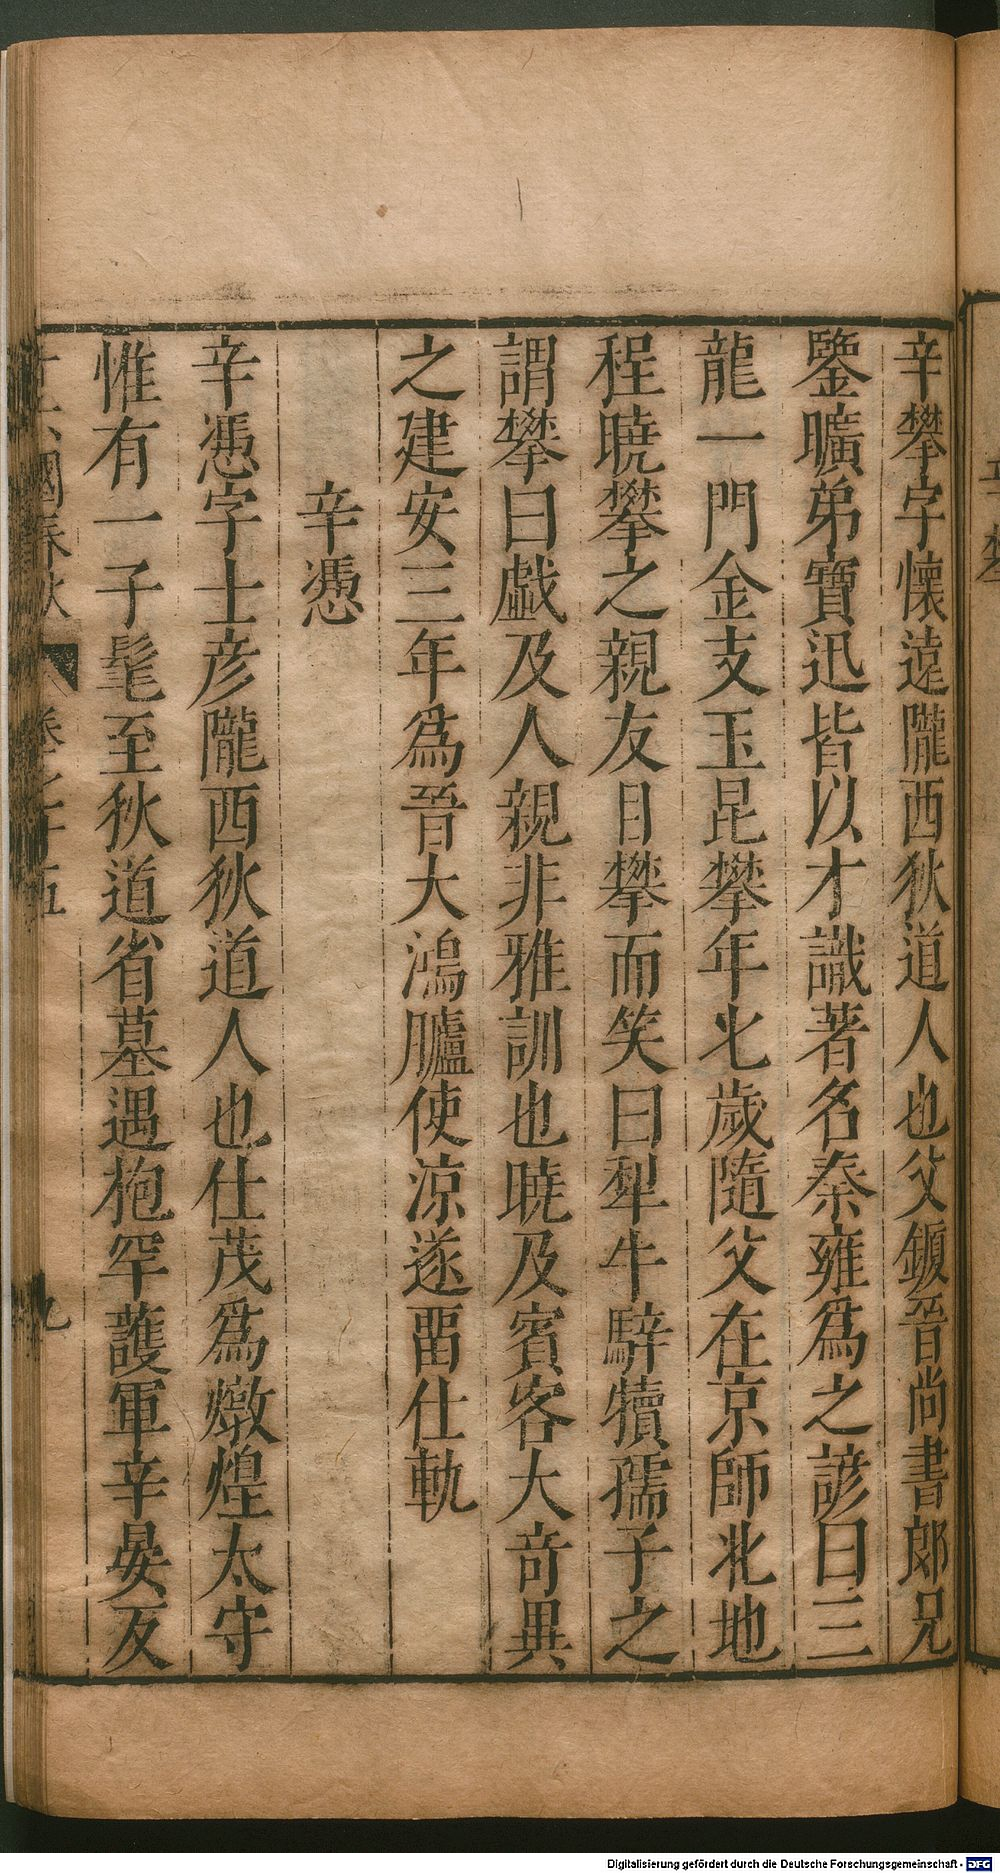 辛攀字懷遠隴西狄道人也父鎮晉尚書郎兄
鑒曠弟寶迅皆以才識著名秦雍爲之諺曰三
龍一門金支玉昆攀年七歲隨父在京師北地
程曉攀之親友目攀而笑曰犁牛騂犢孺子之
謂攀曰戯及人親非雅訓也曉及賓客大奇異
之建安三年爲晉大鴻臚使涼遂畱仕軌
辛憑
辛憑字士彦隴西狄道人也仕茂爲燉煌太守
惟有一子髦至狄道省墓遇枹罕護軍辛晏反
國春秋 卷 五
九
Digitalisierung gefördert durch die Deutsche Forschungsgemeinschaft - DFG